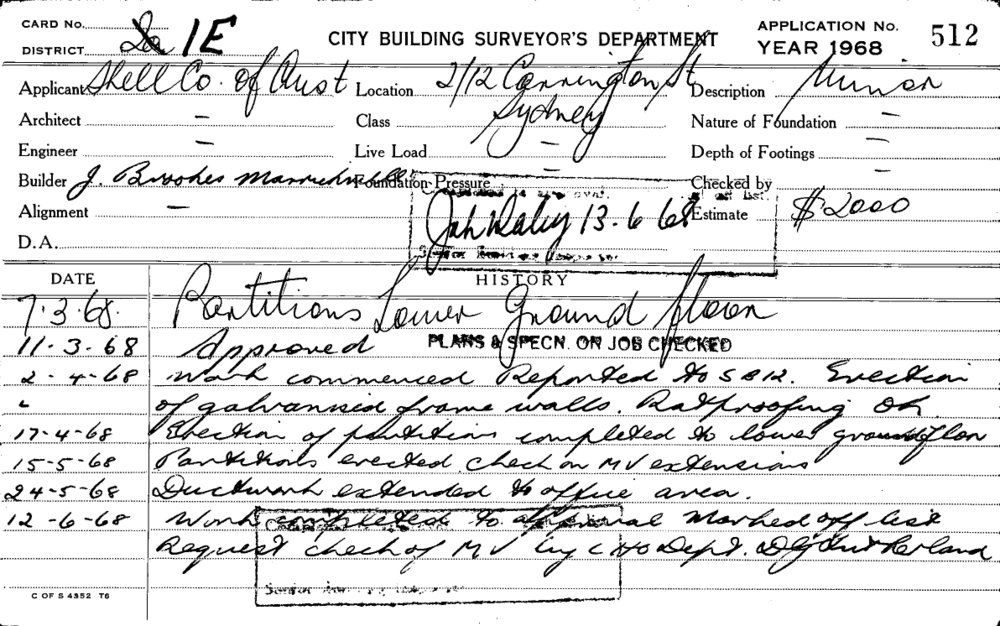 CARD No.
DISTRICT 1E
CITY BUILDING SURVEYOR'S DEPARTMENT
APPLICATION No. 512
YEAR 1968
Applicant Shell Co. of Aust Location 2/12 Carrington St Description Minor
Sydney
Architect – Class – Nature of Foundation –
Engineer – Live Load – Depth of Footings –
Builder J. Brookes Marrickville Foundation Pressure Checked by
Alignment – 13.6.68 Estimate $2000
D.A.
DATE HISTORY
7.3.68. Partitions Lower Ground floor
11-3-68 Approved PLANS & SPECN. ON JOB CHECKED
2-4-68 Work commenced Reported to S812. Erection
of galvanised frame walls. Ratproofing OK
17-4-68 Erection of partitions completed to lower ground floor
15-5-68 Partitions erected check on MV extensions
24-5-68 Ductwork extended to office area.
12-6-68 Work completed to approval Marked off list
Request check of MV by CHO Dept.
C OF S 4352 T6